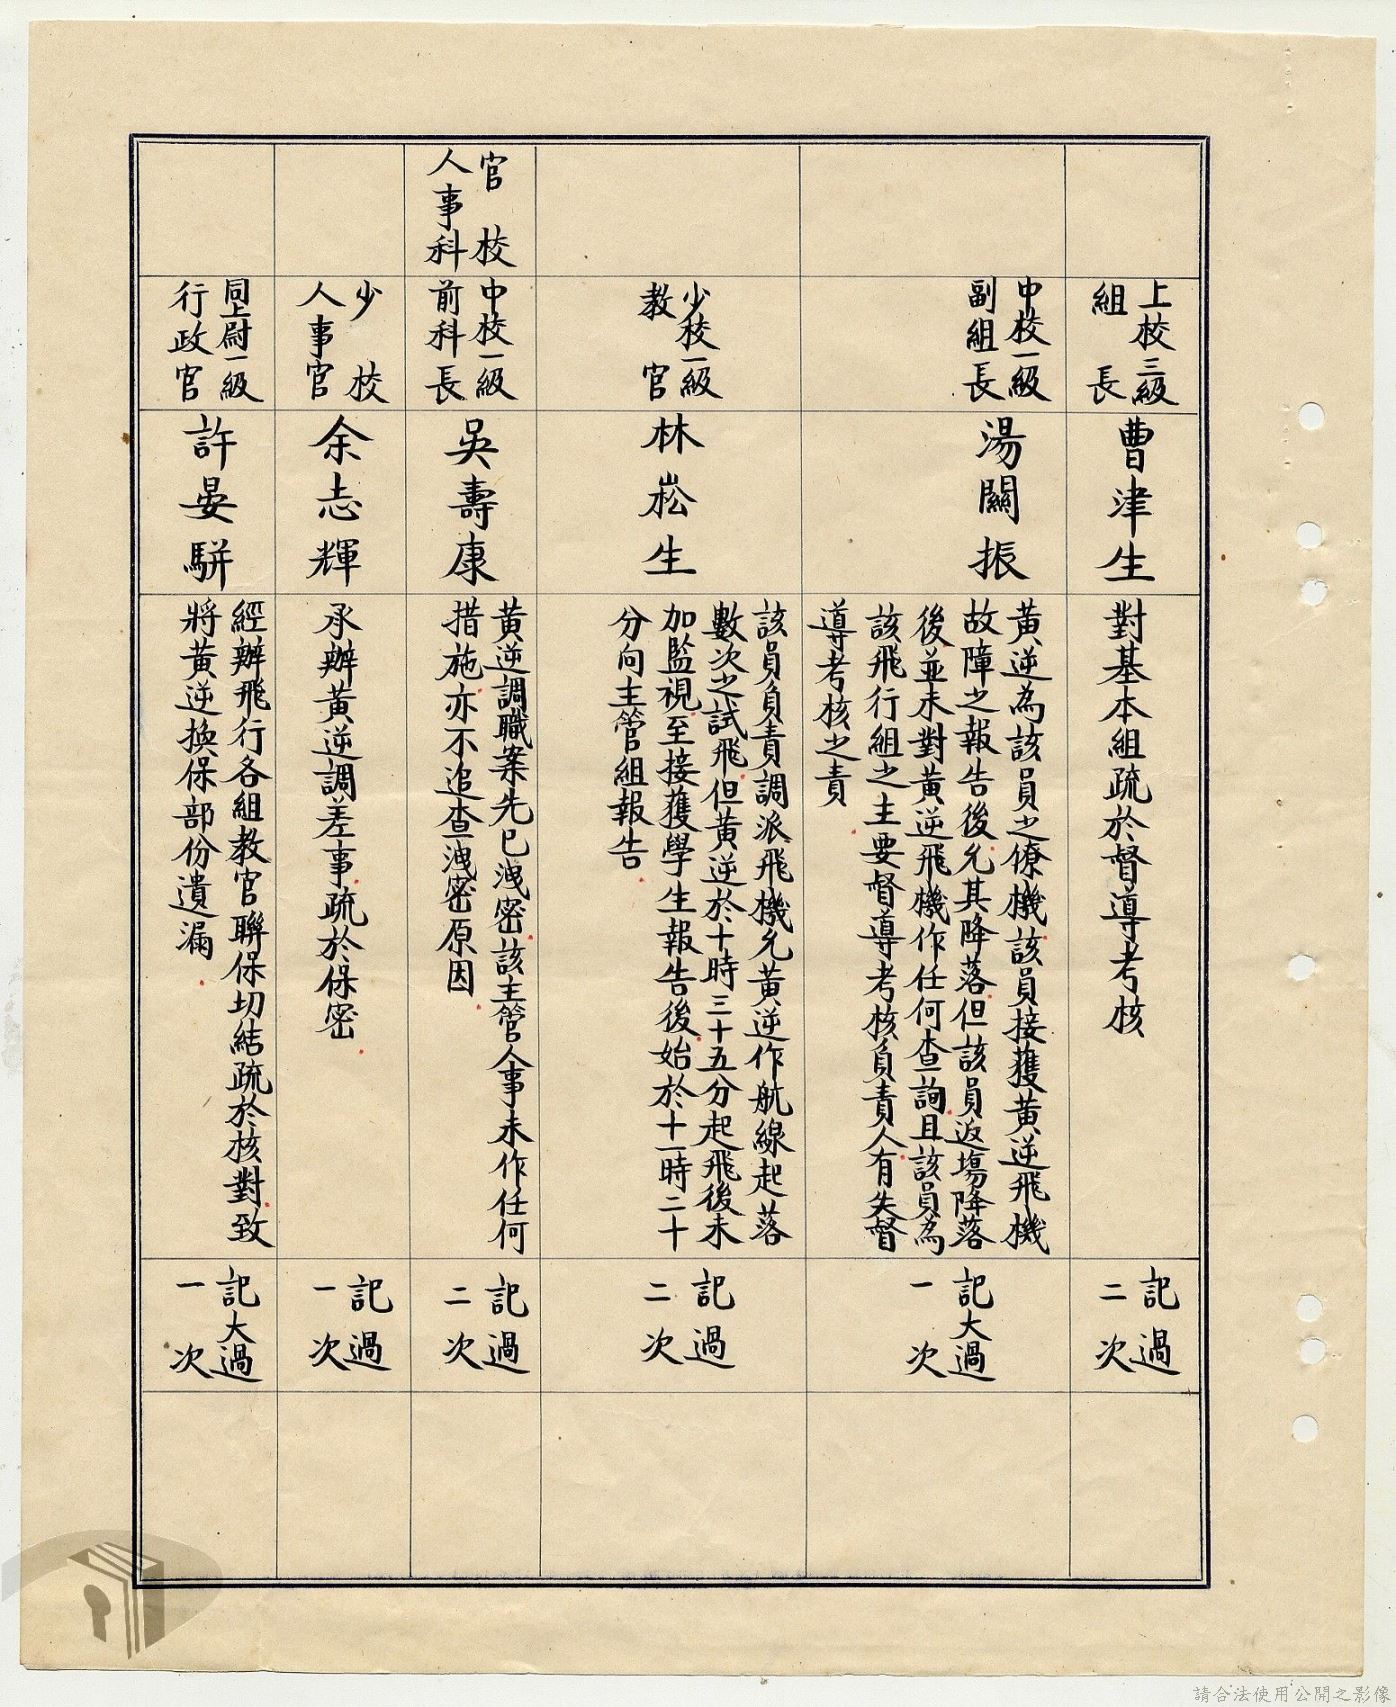 上校三級
組長
曹津生
對基本組疏於督導考核
記過
二次
中校一級
副組長
湯闢振
黃逆為該員之僚機該員接獲黃逆飛機
故障之報告後允其降落但該員返場降落
後並未對黃逆飛機作任何查詢且該員為
該飛行組之主要督導考核負責人有失督
導考核之責
記大過
一次
少校一級
教官
林崧生
該員負責調派飛機允黃逆作航線起落
數次之試飛但黃逆於十時三十五分起飛後未
加監視至接獲學生報告後始於十一時二十
分向主管組報告
記過
二次
官校
人事科
中校一級
前科長
吳壽康
黃逆調職案先已洩密該主管人事未作任何
措施亦不追查洩密原因
記過
二次
少校
人事官
余志輝
承辦黃逆調差事疏於保密
記過
一次
同上尉一級
行政官
許晏駢
經辦飛行各組教官聯保切結疏於核對致
將黃逆換保部份遺漏
記大過
一次
請合法使用公開之影像